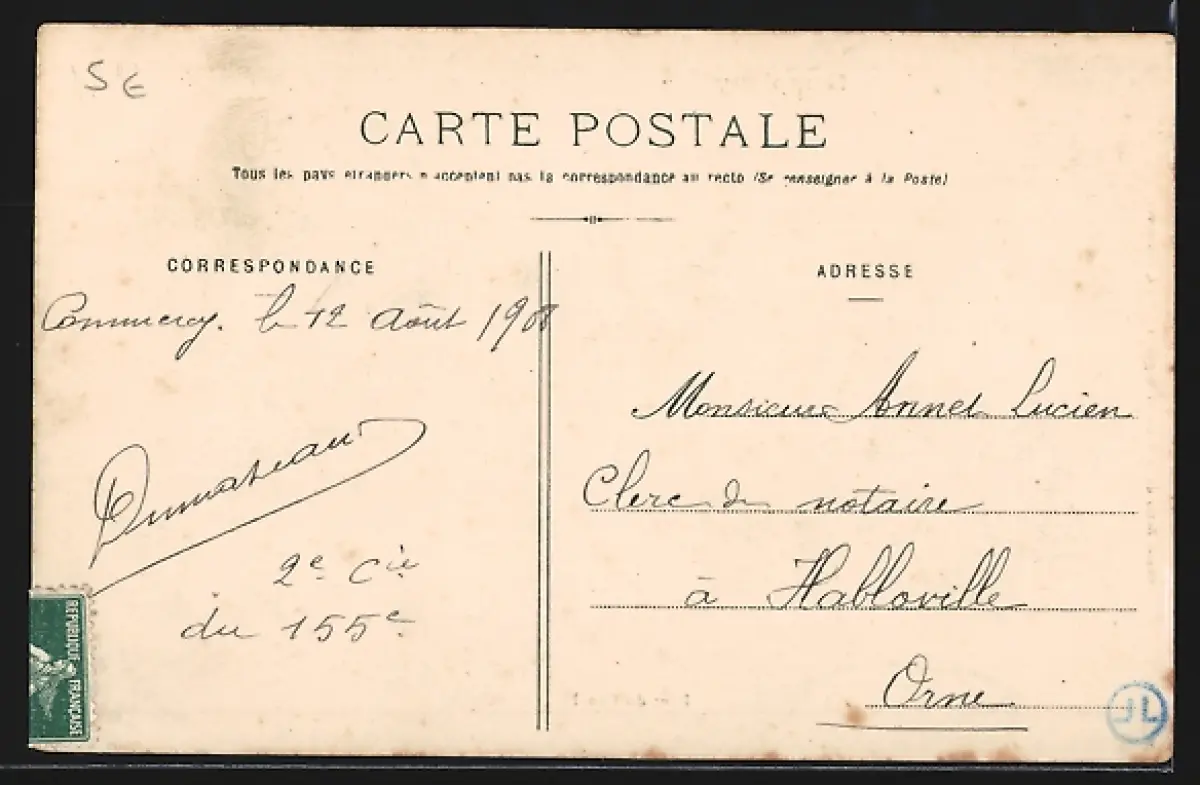 5 €
CARTE POSTALE
Tous les pays étrangers n'acceptent pas la correspondance au recto (Se renseigner à la Poste)
CORRESPONDANCE
Commercy, le 12 Août 1908
2e Cie
du 155e
REPUBLIQUE FRANÇAISE
ADRESSE
Monsieur Annet Lucien
Clerc de notaire
à Habloville
Orne
JL